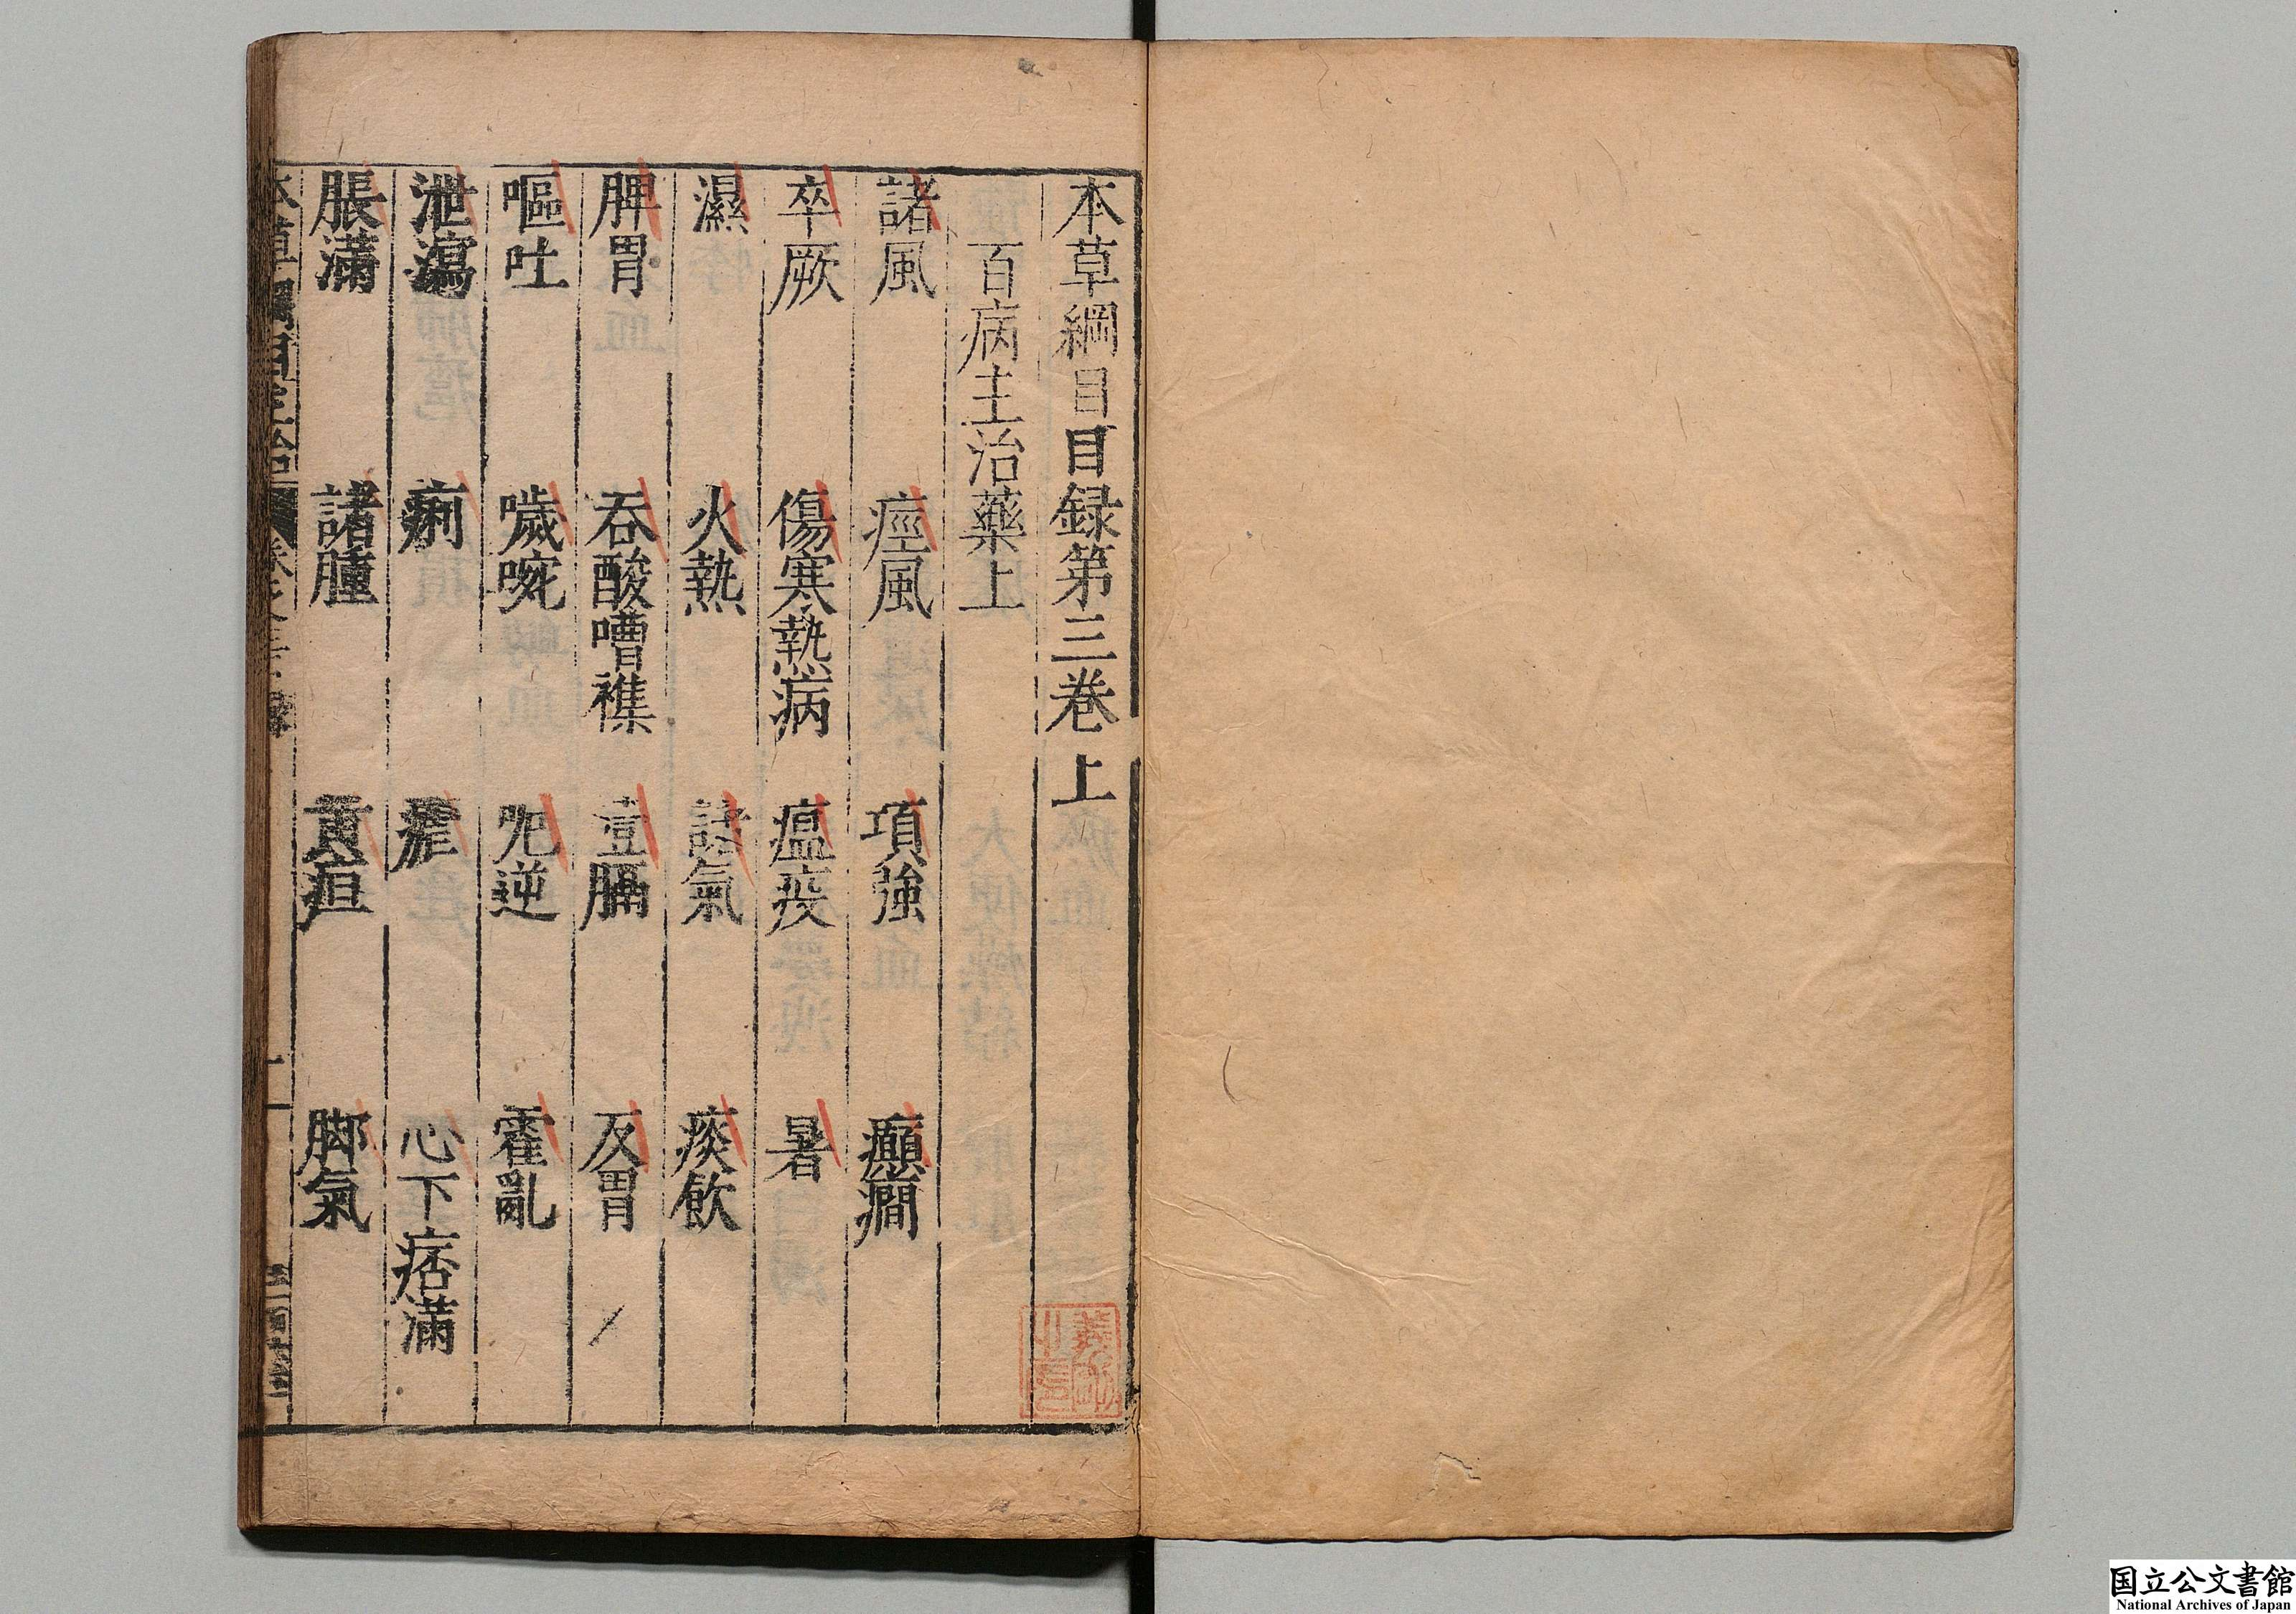 本草綱目目録第三巻上
百病主治藥上
諸風　痙風　項強　癲癇
卒厥　傷寒熱病　瘟疫　暑
濕　火熱　諸氣　痰飲
脾胃　吞酸嘈襍　噎膈　反胃
嘔吐　噦啘　呃逆　霍亂
泄瀉　痢　瘧　心下痞滿
脹滿　諸腫　黃疸　脚氣
国立公文書館
National Archives of Japan